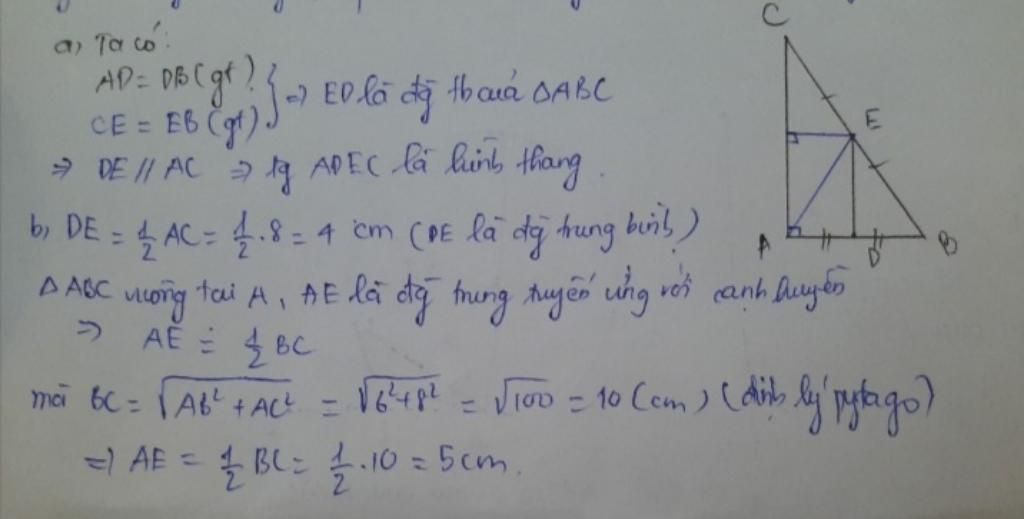 a) Ta có:
AD = DB (gt)
CE = EB (gt) } => ED là đg tb của ΔABC
=> DE // AC => tg ADEC là hình thang.
b) DE = 1/2 AC = 1/2 . 8 = 4 cm (DE là đg trung bình)
ΔABC vuông tại A, AE là đg trung tuyến ứng với cạnh huyền
=> AE = 1/2 BC
mà BC = √(AB² + AC²) = √(6² + 8²) = √100 = 10 (cm) (định lý pytago)
=> AE = 1/2 BC = 1/2 . 10 = 5 cm.
C
E
A
D
B